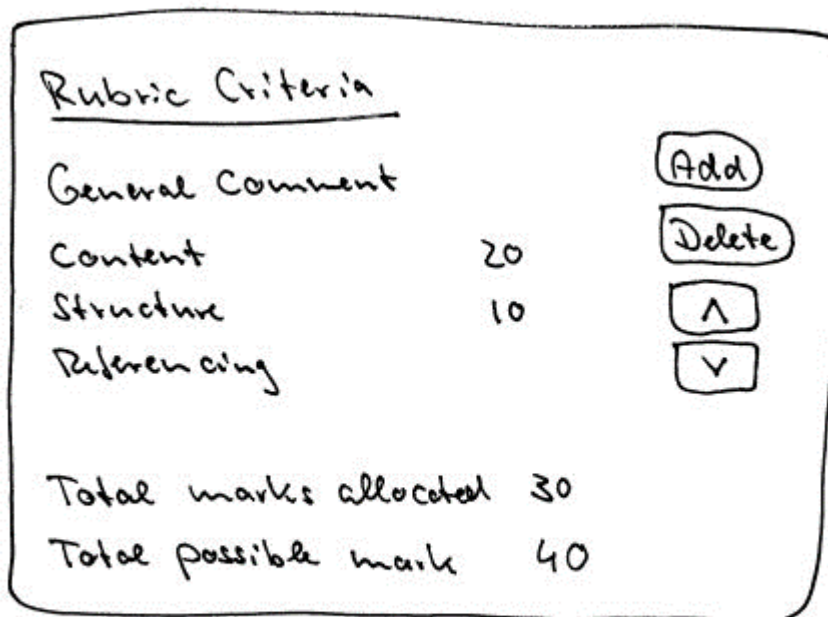 Rubric Criteria
General Comment
Add
Content 20
Delete
Structure 10
∧
Referencing
∨
Total marks allocated 30
Total possible mark 40